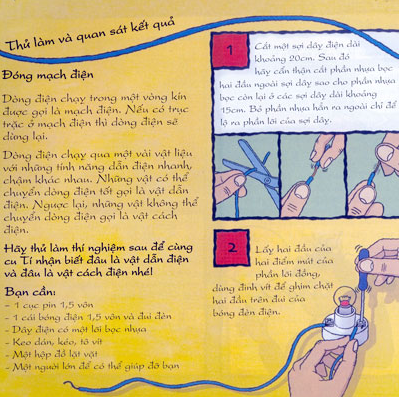 Thử làm và quan sát kết quả
Đóng mạch điện
Dòng điện chạy trong một vòng kín
được gọi là mạch điện. Nếu có trục
trặc ở mạch điện thì dòng điện sẽ
dừng lại.
Dòng điện chạy qua một vài vật liệu
với những tính năng dẫn điện nhanh,
chậm khác nhau. Những vật có thể
chuyển dòng điện tốt gọi là vật dẫn
điện. Ngược lại, những vật không thể
chuyển dòng điện gọi là vật cách
điện.
Hãy thử làm thí nghiệm sau để cùng
cu Tí nhận biết đâu là vật dẫn điện
và đâu là vật cách điện nhé!
Bạn cần:
- 1 cục pin 1,5 vôn
- 1 cái bóng điện 1,5 vôn và đui đèn
- Dây điện có một lõi bọc nhựa
- Keo dán, kéo, tô vít
- Một hộp đồ lặt vặt
- Một người lớn để có thể giúp đỡ bạn
1
Cắt một sợi dây điện dài
khoảng 20cm. Sau đó
hãy cẩn thận cắt phần nhựa bọc
hai đầu ngoài sợi dây sao cho phần nhựa
bọc còn lại ở các sợi dây dài khoảng
15cm. Bỏ phần nhựa hẳn ra ngoài chỉ để
lộ ra phần lõi của sợi dây.
2
Lấy hai đầu của
hai điểm mút của
phần lõi đồng,
dùng đinh vít để ghim chặt
hai đầu trên đui của
bóng đèn điện.